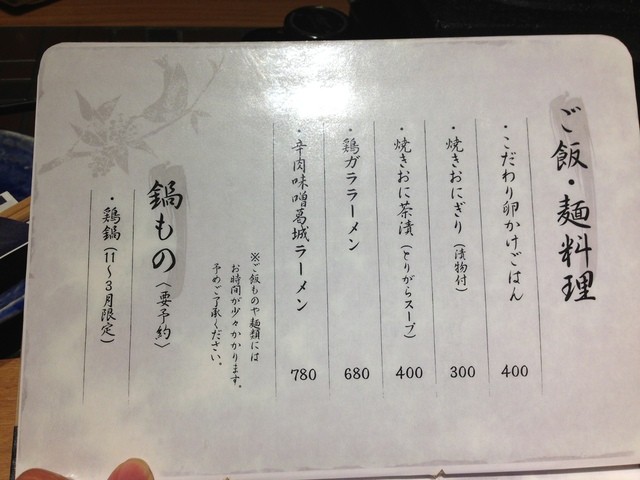 ご飯・麺料理
・こだわり卵かけごはん 400
・焼きおにぎり（漬物付） 300
・焼きおに茶漬（とりがらスープ） 400
・鶏ガララーメン 680
・辛肉味噌葛城ラーメン 780
※ご飯ものや麺類には
お時間が少々かかります。
予めご了承ください。
鍋もの〈要予約〉
・鶏鍋（11〜3月限定）